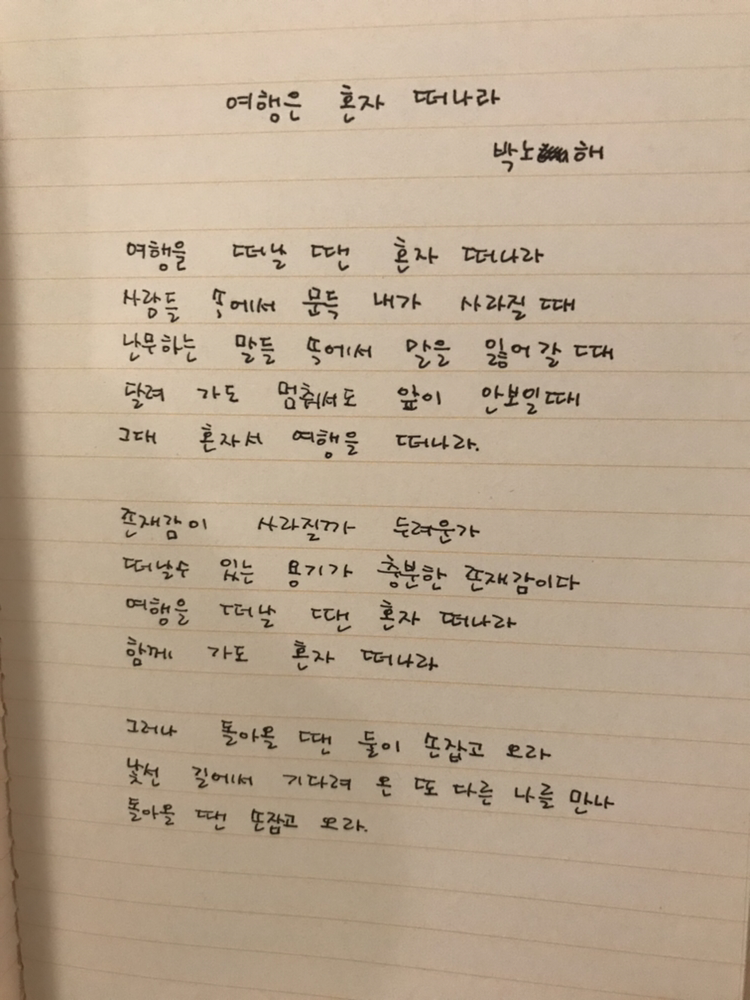 여행은 혼자 떠나라
박노해
여행을 떠날 땐 혼자 떠나라
사람들 속에서 문득 내가 사라질 때
난무하는 말들 속에서 말을 잃어 갈 때
달려 가도 멈춰서도 앞이 안보일때
그대 혼자서 여행을 떠나라.
존재감이 사라질까 두려운가
떠날수 있는 용기가 충분한 존재감이다
여행을 떠날 땐 혼자 떠나라
함께 가도 혼자 떠나라
그러나 돌아올 땐 둘이 손잡고 오라
낯선 길에서 기다려 온 또 다른 나를 만나
돌아올 땐 손잡고 오라.